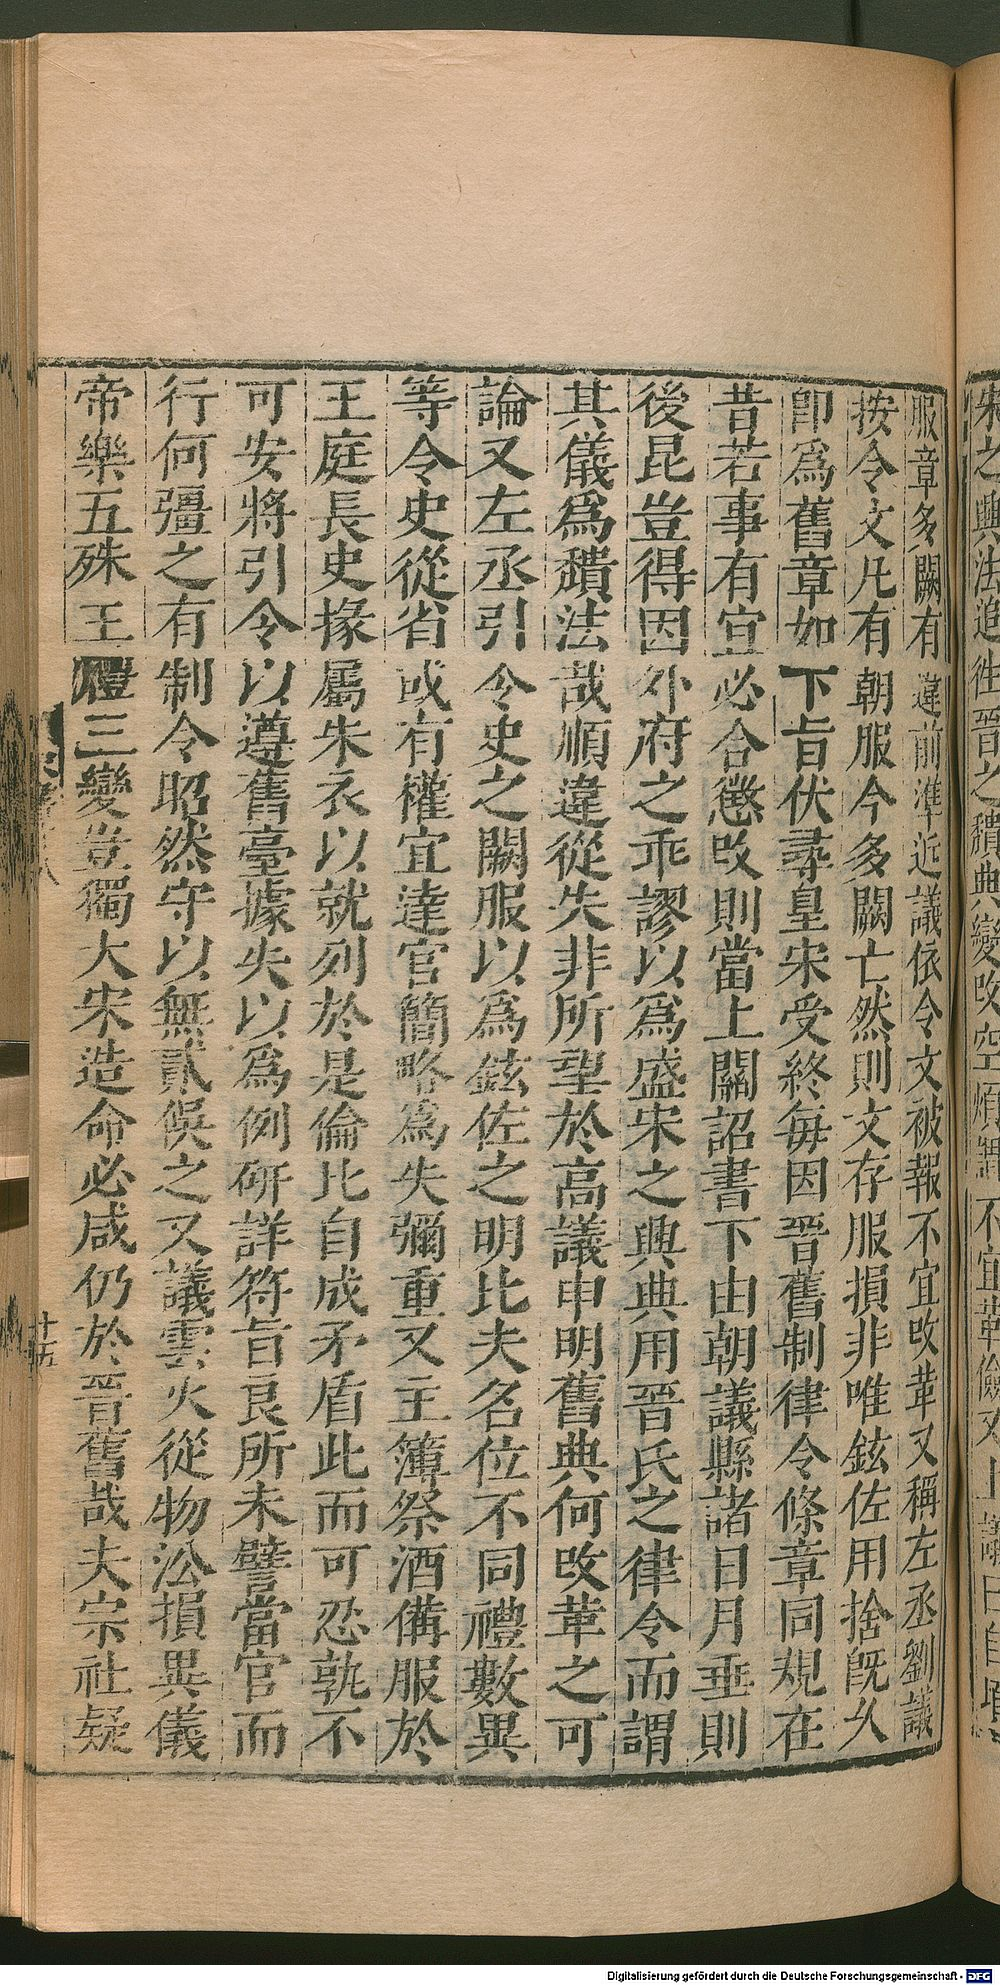 宋之興法進從晉之穨典變改空煩 不宜革儉又上議曰自
服章多闕有違前準近議依令文被報不宜改革又稱左丞劉議
按令文凡有朝服今多闕亡然則文存服損非唯鉉佐用捨既久
卽爲舊章如下旨伏尋皇宋受終每因晉舊制律令條章同規在
昔若事有宜必合懲改則當上關詔書下由朝議縣諸日月垂則
後昆豈得因外府之乖謬以爲盛宋之興典用晉氏之律令而謂
其儀爲穨法哉順違從失非所望於高議申明舊典何改革之可
論又左丞引令史之闕服以爲鉉佐之明比夫名位不同禮數異
等令史從省或有權宜達官簡略爲失彌重又主簿祭酒備服於
王庭長史掾屬朱衣以就列於是倫比自成矛盾此而可忍孰不
可安將引令以遵舊臺據失以爲例硏詳符旨良所未譬當官而
行何彊之有制令昭然守以無貳俟之又議雲火從物沿損異儀
帝樂五殊王禮三變豈獨大宋造命必咸仍於晉舊哉夫宗社疑
十五
Digitalisierung gefördert durch die Deutsche Forschungsgemeinschaft - DFG